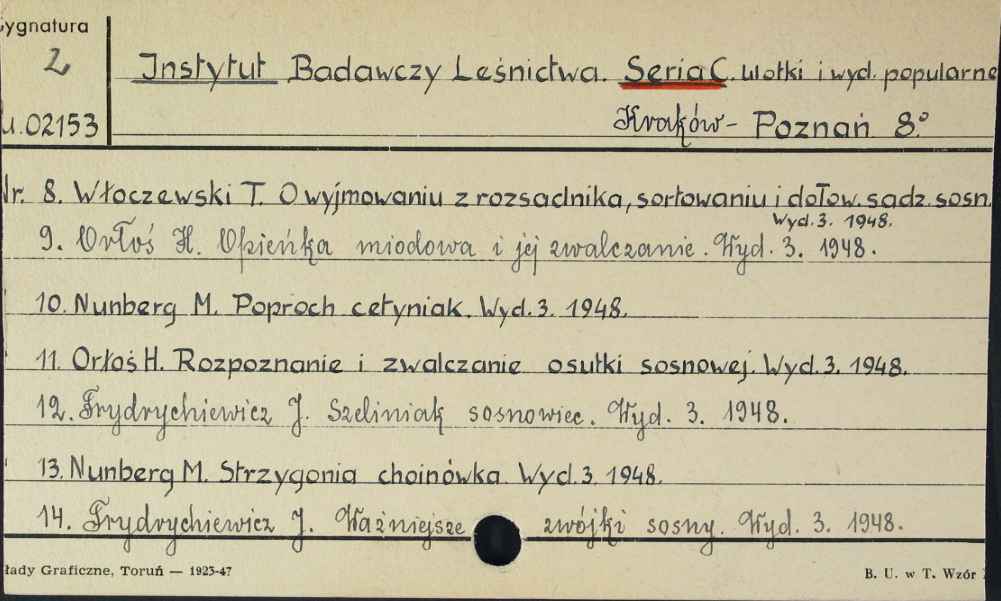 Sygnatura
2
Instytut Badawczy Leśnictwa. Seria C. Ulotki i wyd. popularne
U.02153
Kraków - Poznań 8.°
Nr. 8. Włoczewski T. O wyjmowaniu z rozsadnika, sortowaniu i dołow. sadz. sosn.
Wyd. 3. 1948.
9. Orłoś H. Opieńka miodowa i jej zwalczanie. Wyd. 3. 1948.
10. Nunberg M. Poproch cetyniak. Wyd. 3. 1948.
11. Orłoś H. Rozpoznanie i zwalczanie osutki sosnowej. Wyd. 3. 1948.
12. Frydrychiewicz J. Szeliniak sosnowiec. Wyd. 3. 1948.
13. Nunberg M. Strzygonia choinówka. Wyd. 3. 1948.
14. Frydrychiewicz J. Ważniejsze zwójki sosny. Wyd. 3. 1948.
łady Graficzne, Toruń — 1923-47
B. U. w T. Wzór